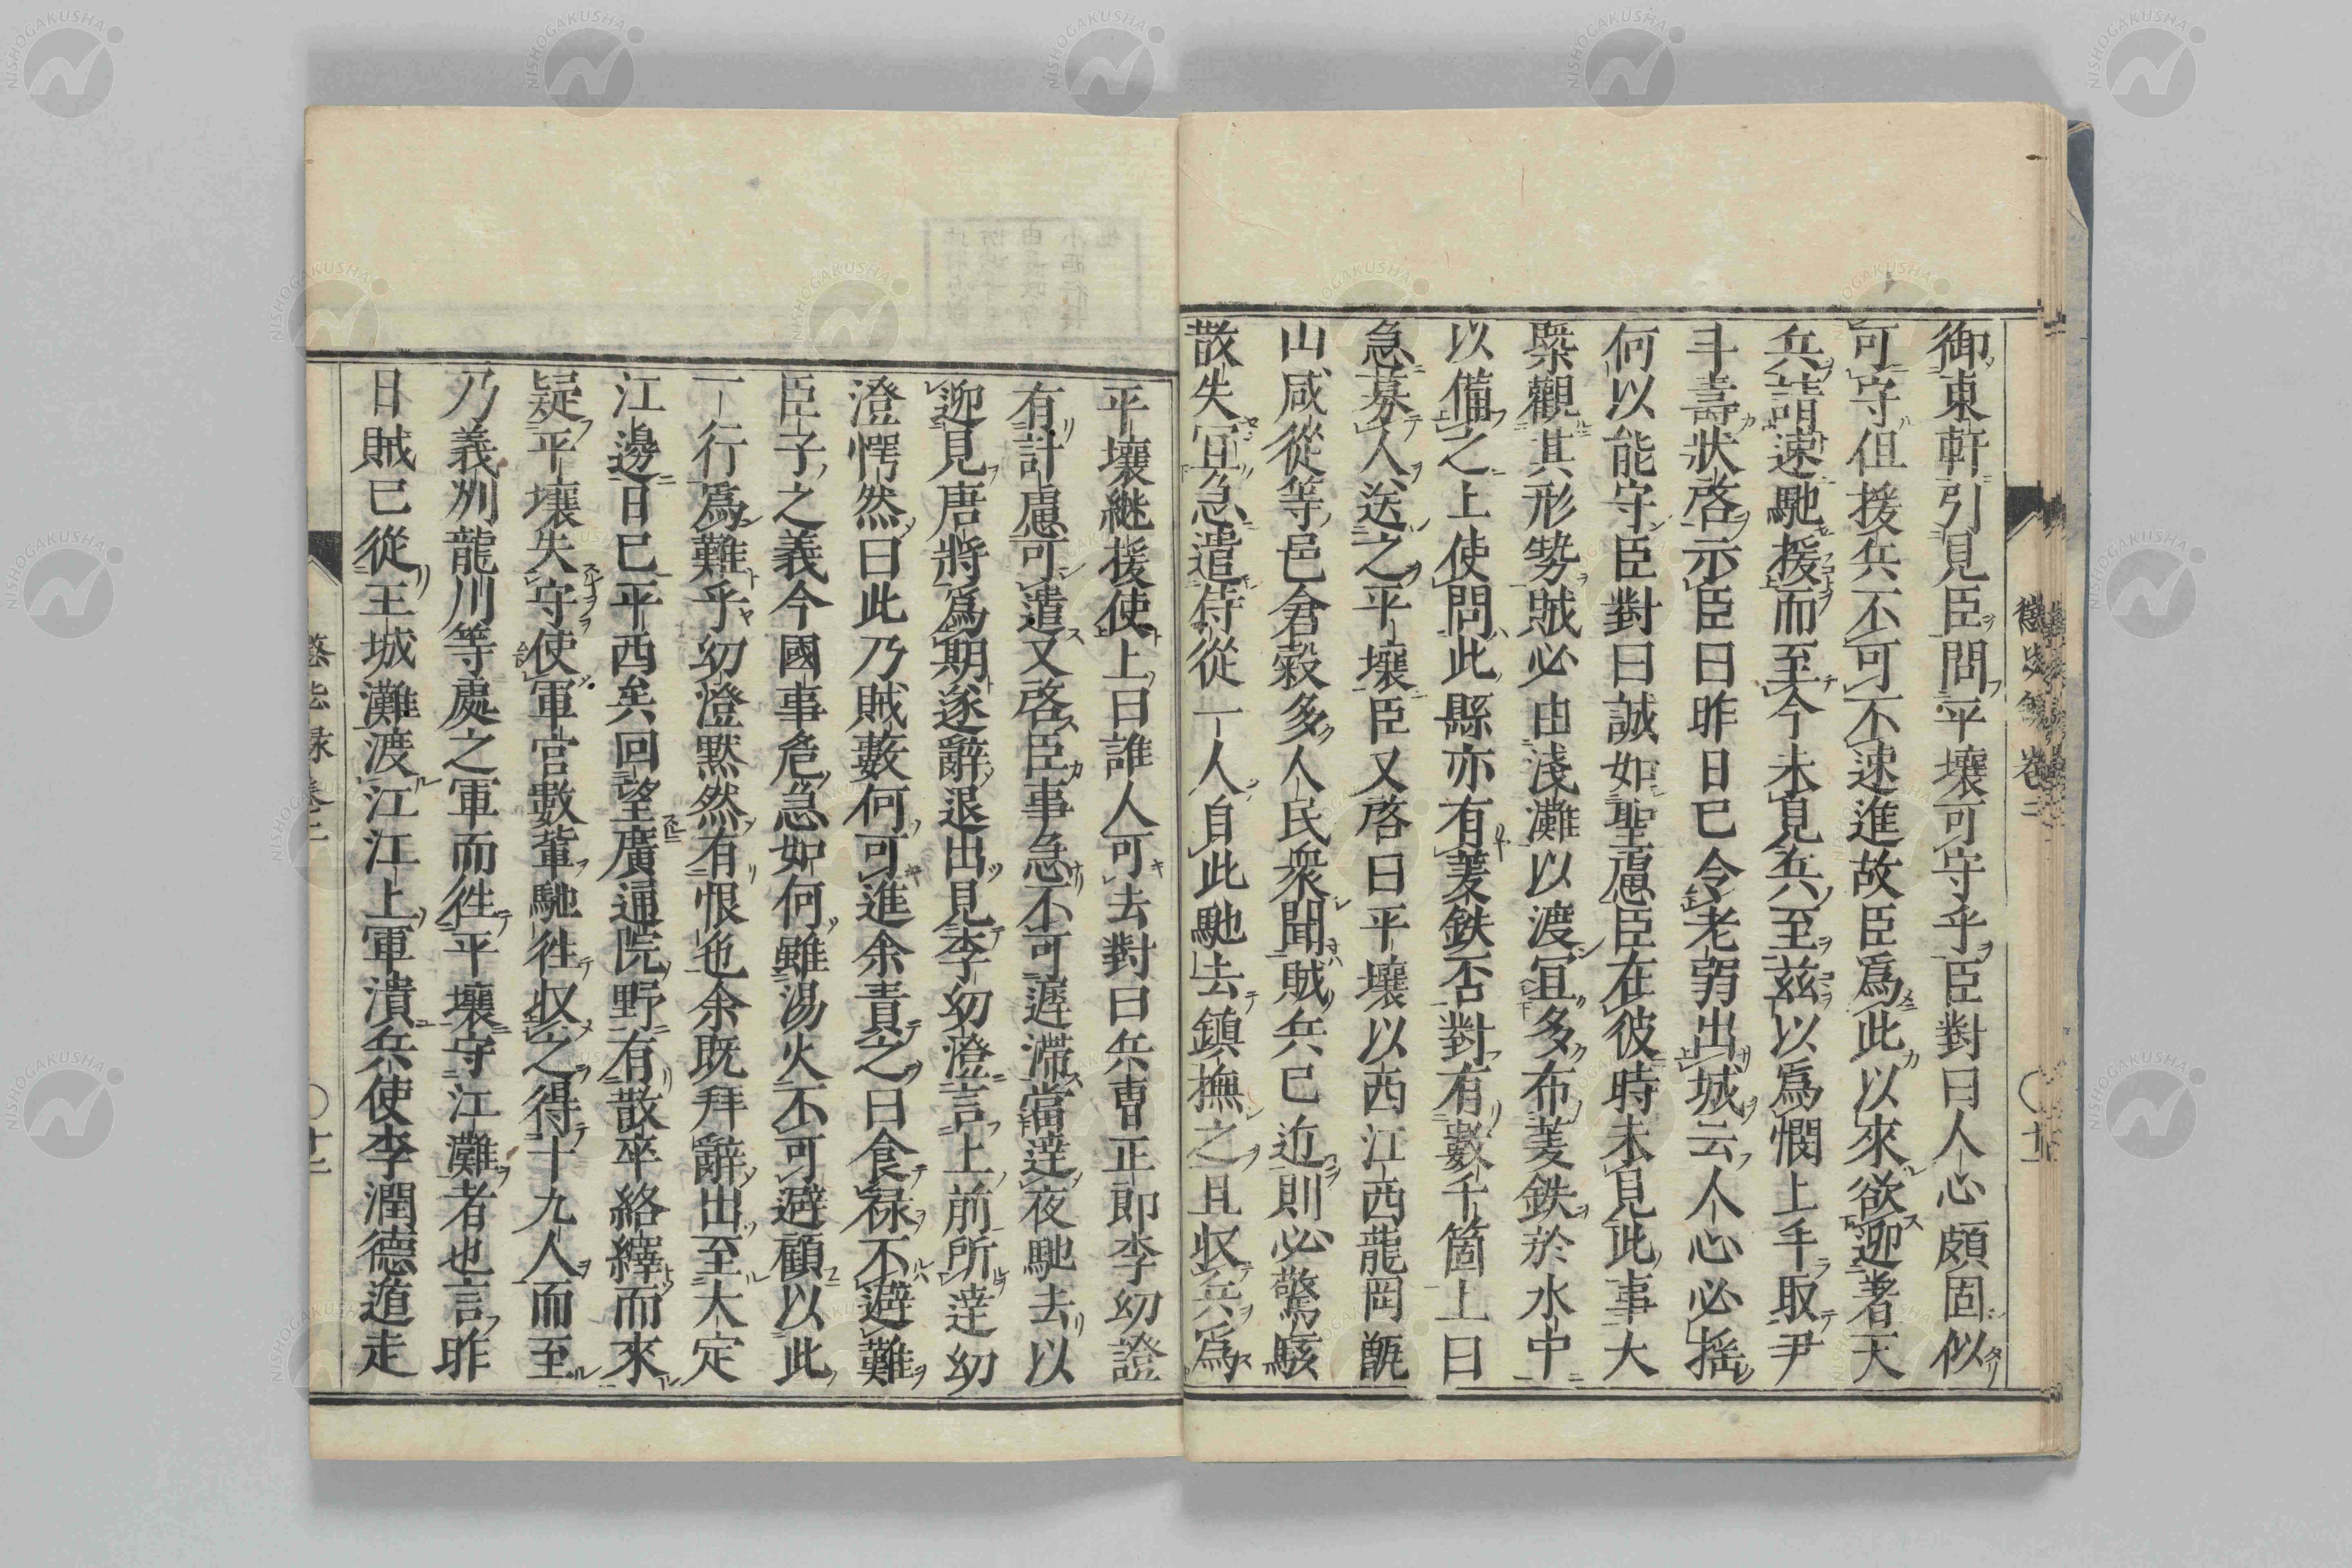 御東軒引見臣問平壤可守乎臣對曰人心頗固似
可守但援兵不可不速進故臣爲此以來欲迎著天
兵請速馳援而至今未見兵至茲以爲憫上手取尹
斗壽狀啓示臣曰昨日已令老弱出城云人心必搖
何以能守臣對曰誠如聖慮臣在彼時未見此事大
槩觀其形勢賊必由淺灘以渡宜多布菱鉄於水中
以備之上使問此縣亦有菱鉄否對有數千箇上曰
急募人送之平壤臣又啓曰平壤以西江西龍岡甑
山咸從等邑倉穀多人民衆聞賊兵已近則必驚駭
散失宜急遣侍從一人自此馳去鎮撫之且収兵爲
平壤継援使上曰誰人可去對曰兵曹正郎李幼證
有計慮可遣又啓臣事急不可遲滞當達夜馳去以
迎見唐將爲期遂辭退出見李幼澄言上前所達幼
澄愕然曰此乃賊藪何可進余責之曰食禄不避難
臣子之義今國事危急如何雖湯火不可避顧以此
一行爲難乎幼澄黙然有恨色余既拜辭出至大定
江邊日已平西矣回望廣通院野有散卒絡繹而來
疑平壤失守使軍官數輩馳徃収之得十九人而至
乃義州龍川等處之軍而徃平壤守江灘者也言昨
日賊已從王城灘渡江江上軍潰兵使李潤德遁走
懲毖録卷二
十二
NISHOGAKUSHA